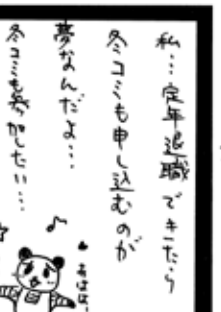 私…定年退職できたら
冬コミも申し込むのが
夢なんだよ…
冬コミも参加したい…
あはは、